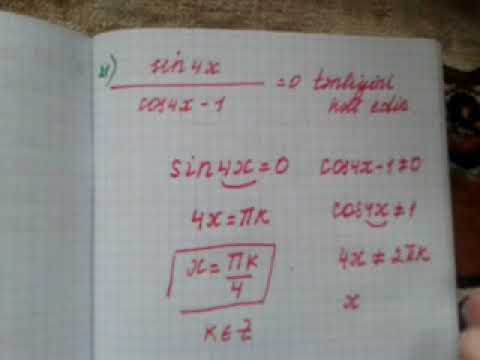 sin4x / cos4x-1 =0 tənliyini
həll edin
sin4x=0 cos4x-1≠0
4x=πk cos4x≠1
x=πk/4 4x≠2πk
k∈Z x